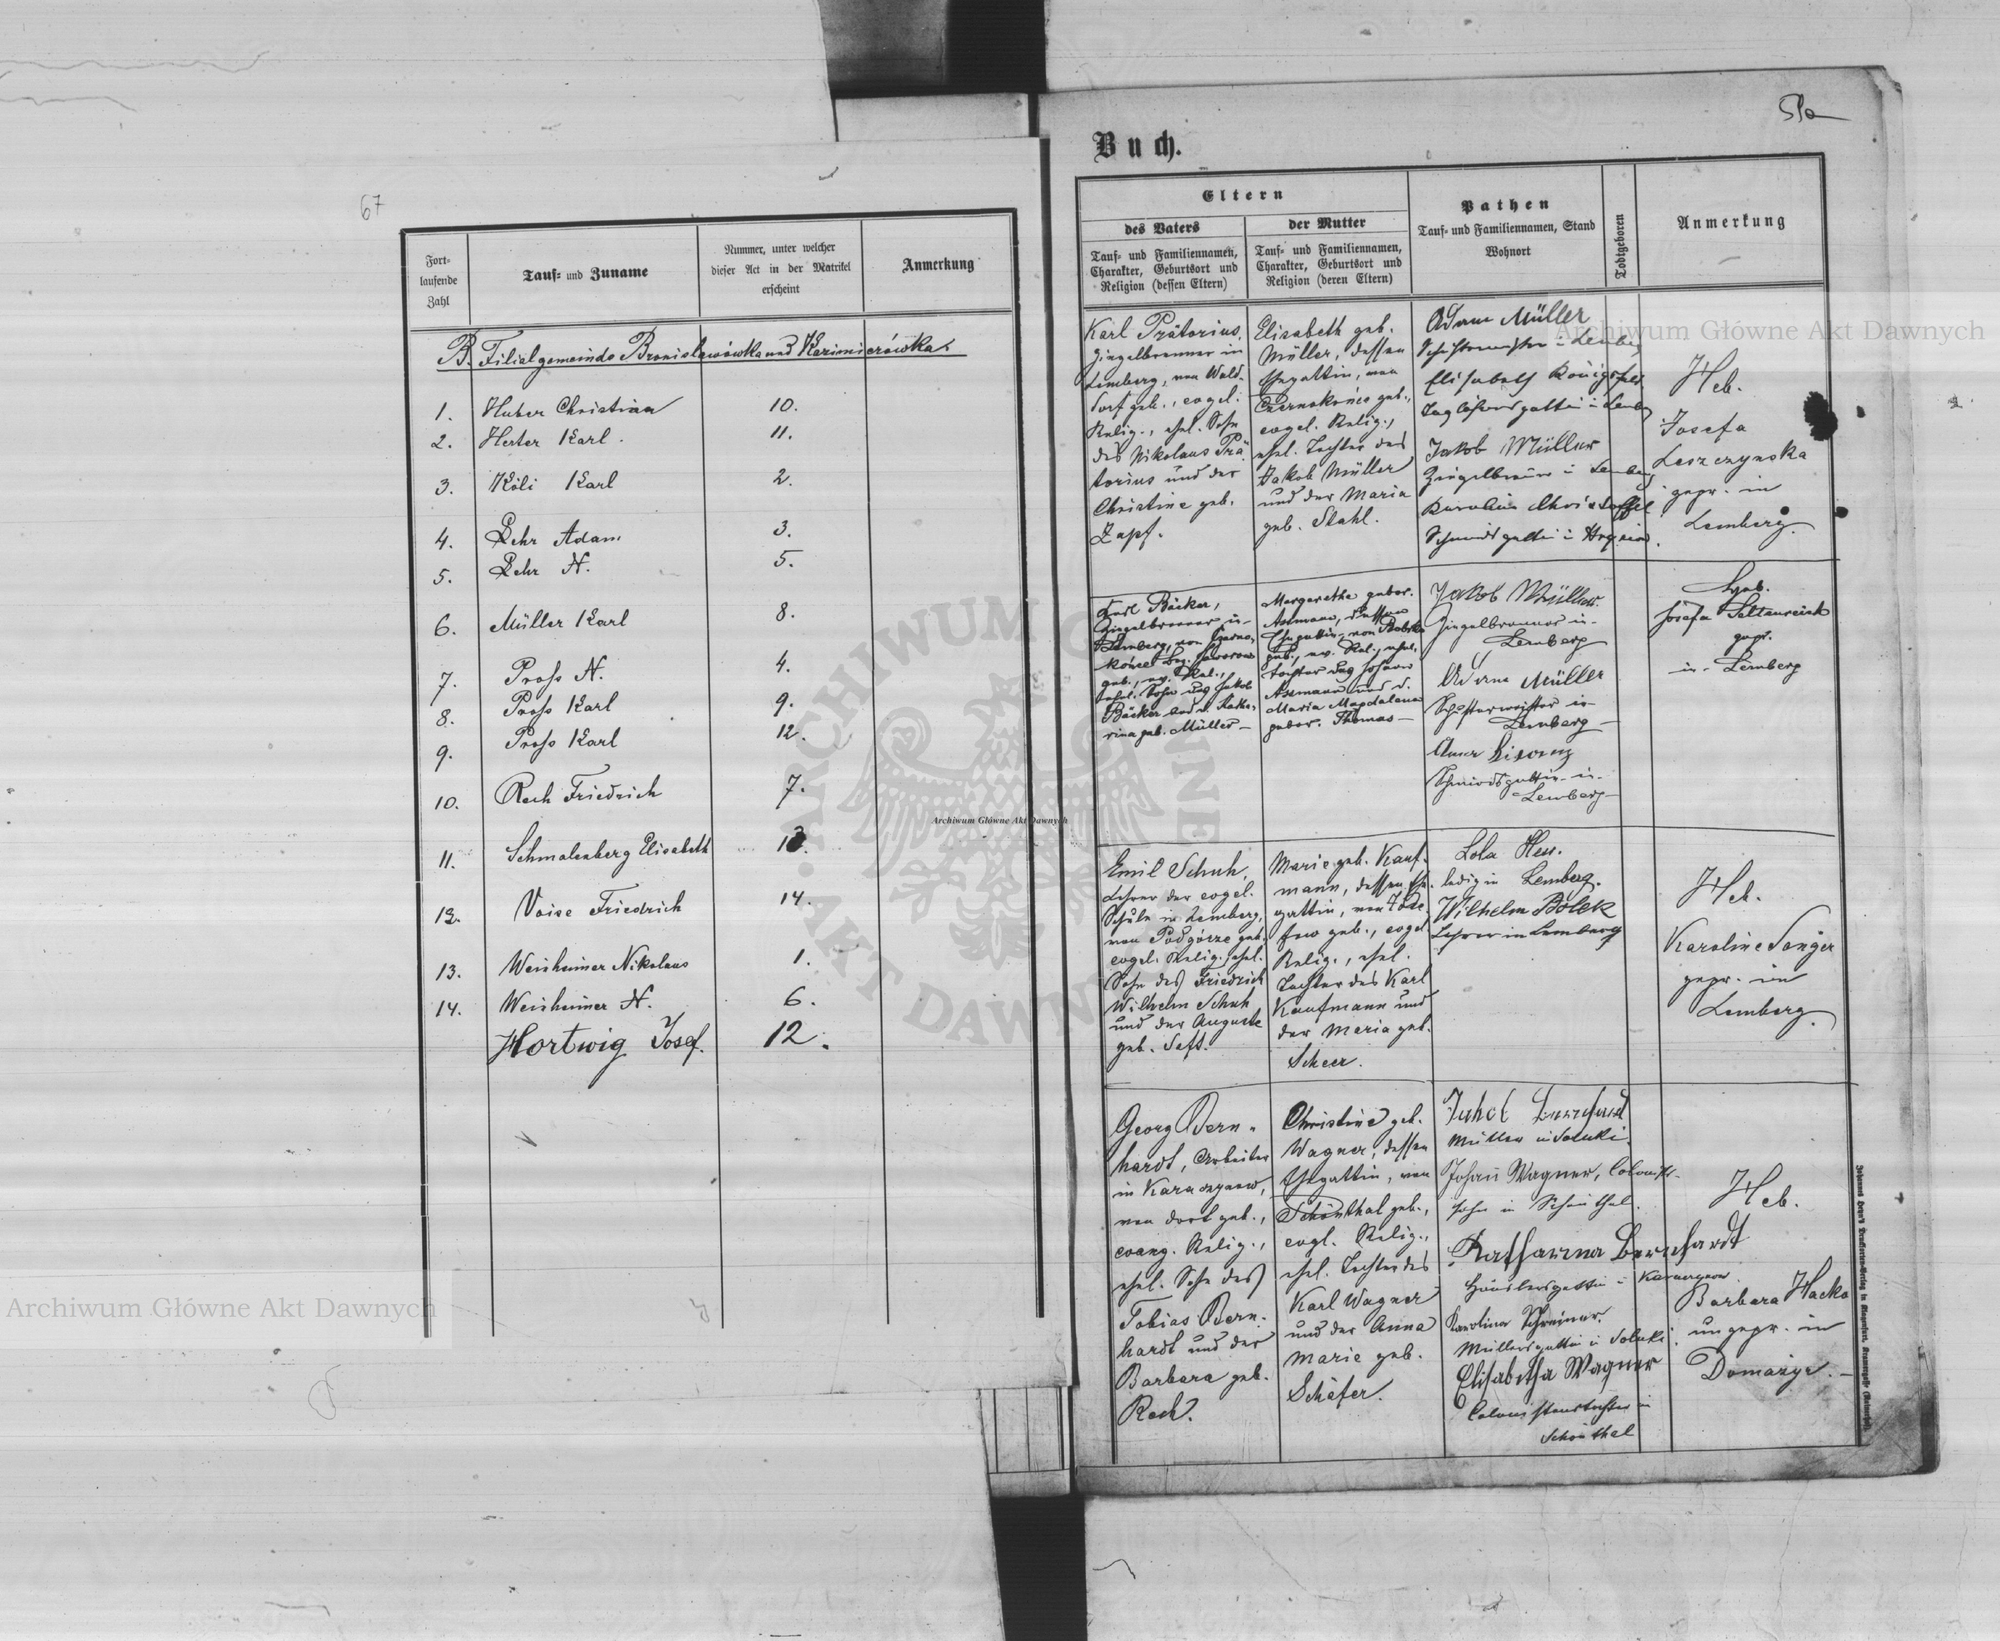 67
Fort-
laufende
Zahl
Tauf- und Zuname
Nummer, unter welcher
dieser Act in der Matrikel
erscheint
Anmerkung
B. Filialgemeinde Bronisławówka und Kazimierówka.
1. Huber Christian 10.
2. Herter Karl. 11.
3. Köli Karl 2.
4. Lehr Adam 3.
5. Lehr N. 5.
6. Müller Karl 8.
7. Pross N. 4.
8. Pross Karl 9.
9. Pross Karl 12.
10. Rech Friedrich 7.
11. Schmalenberg Elisabeth
12. Voise Friedrich 14.
13. Weisheimer Nikolaus 1.
14. Weisheimer N. 6.
Hortwig Josef. 12.
Buch.
Eltern
des Vaters
Tauf- und Familiennamen,
Charakter, Geburtsort und
Religion (dessen Eltern)
der Mutter
Tauf- und Familiennamen,
Charakter, Geburtsort und
Religion (deren Eltern)
Pathen
Tauf- und Familiennamen, Stand
Wohnort
Todtgeboren
Anmerkung
Karl Prätorius,
Ziegelbrenner in
Lemberg, von Wald-
dorf geb., evgel.
Relig., ehel. Sohn
des Nikolaus Prä-
torius und der
Christine geb.
Zapf.
Elisabeth geb.
Müller, dessen
Ehegattin, von
geb.,
evgel. Relig.,
ehel. Tochter des
Jakob Müller
und der Maria
geb. Stahl.
Adam Müller
in Lemberg
Elisabeth Königsfeld
Taglöhnersgattin in Lemberg
Jakob Müller
Ziegelbrenner in Lemberg
Karoline Christoffel
Schmidsgattin in
Heb.
Josefa
Leszczynska
gepr. in
Lemberg.
Karl Bäcker,
Ziegelbrenner in
Lemberg, von Czerno-
geb., ev. Rel.,
ehel. Sohn des Jakob
Bäcker und d. Katha-
rina geb. Müller —
Margarethe gebor.
Assmann, dessen
Ehegattin, von
geb., ev. Rel., ehel.
Tochter des Johann
Assmann und d.
Maria Magdalena
gebor. Thomas —
Jakob Müller.
Ziegelbrenner in
Lemberg
Adam Müller
in
Lemberg —
Anna
Schmiedsgattin in
Lemberg —
Heb.
Josefa
gepr.
in Lemberg
Emil Schuh,
Lehrer der evgel.
Schule in Lemberg,
von Podgórze geb.
evgel. Relig. ehel.
Sohn des Friedrich
Wilhelm Schuh
und der Auguste
geb. Seft.
Marie geb. Kauf-
mann, dessen Ehe-
gattin, von
geb., evgel.
Relig., ehel.
Tochter des Karl
Kaufmann und
der Maria geb.
Scheer.
Lola Hess.
ledig in Lemberg.
Wilhelm Bolek
Lehrer in Lemberg
Heb.
Karoline Sanger
gepr. in
Lemberg.
Georg Bern-
hardt, Arbeiter
in Karaczynow,
von dort geb.,
evang. Relig.,
ehel. Sohn des
Tobias Bern-
hardt und der
Barbara geb.
Rech.
Christine geb.
Wagner, dessen
Ehegattin, von
Schönthal geb.,
evgl. Relig.,
ehel. Tochter des
Karl Wagner
und der Anna
Marie geb.
Schäfer.
Jakob Bernhardt
Müller in Soluki
Johann Wagner, Colonist-
Sohn in Schönthal.
Katharina Bernhardt
Häuslersgattin in Karaczynow.
Karolina Schreiner.
Müllersgattin in Soluki
Elisabetha Wagner
Colonistenstochter in
Schönthal
Heb.
Barbara Hacko
ungepr. in
Domażyr. —
Archiwum Główne Akt Dawnych
Archiwum Główne Akt Dawnych
Archiwum Główne Akt Dawnych
ARCHIWUM GŁÓWNE AKT DAWNYCH